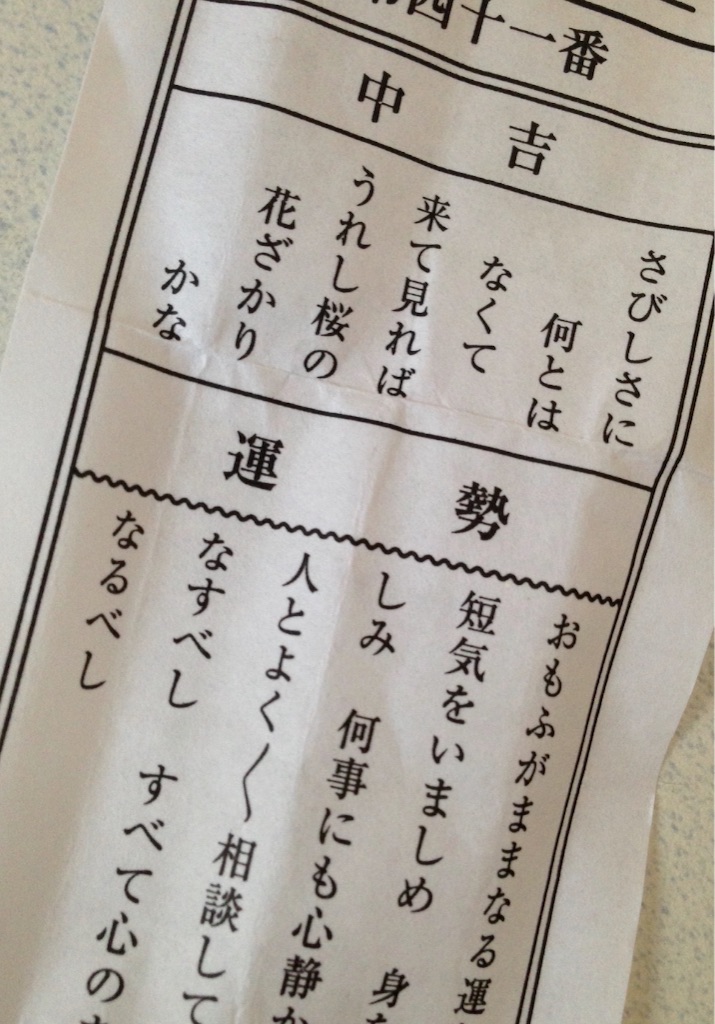 四十一番
中吉
さびしさに
何とは
なくて
来て見れば
うれし桜の
花ざかり
かな
運勢
おもふがままなる運
短気をいましめ 身
しみ 何事にも心静
人とよく〱相談して
なすべし すべて心の
なるべし